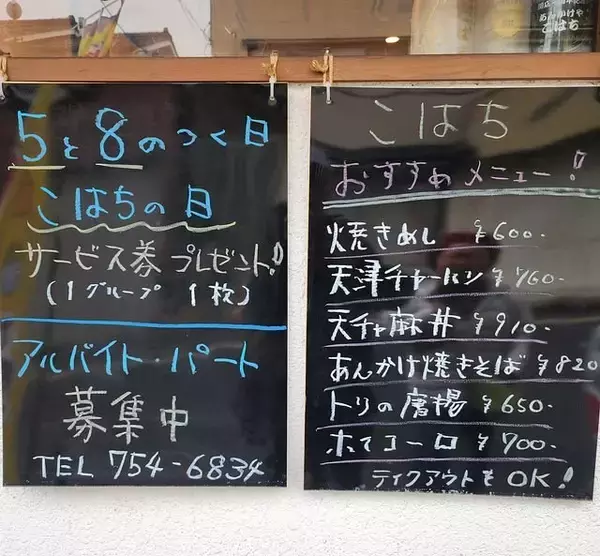 あんかけや
こはち
5と8のつく日
こはちの日
サービス券プレゼント!
(1グループ 1枚)
アルバイト・パート
募集中
TEL 754-6834
こはち
おすすめメニュー!
焼きめし ¥600-
天津チャーハン ¥760-
天チャ麻丼 ¥910-
あんかけ焼きそば ¥820
トリの唐揚 ¥650-
ホイコーロ ¥700-
テイクアウトもOK!